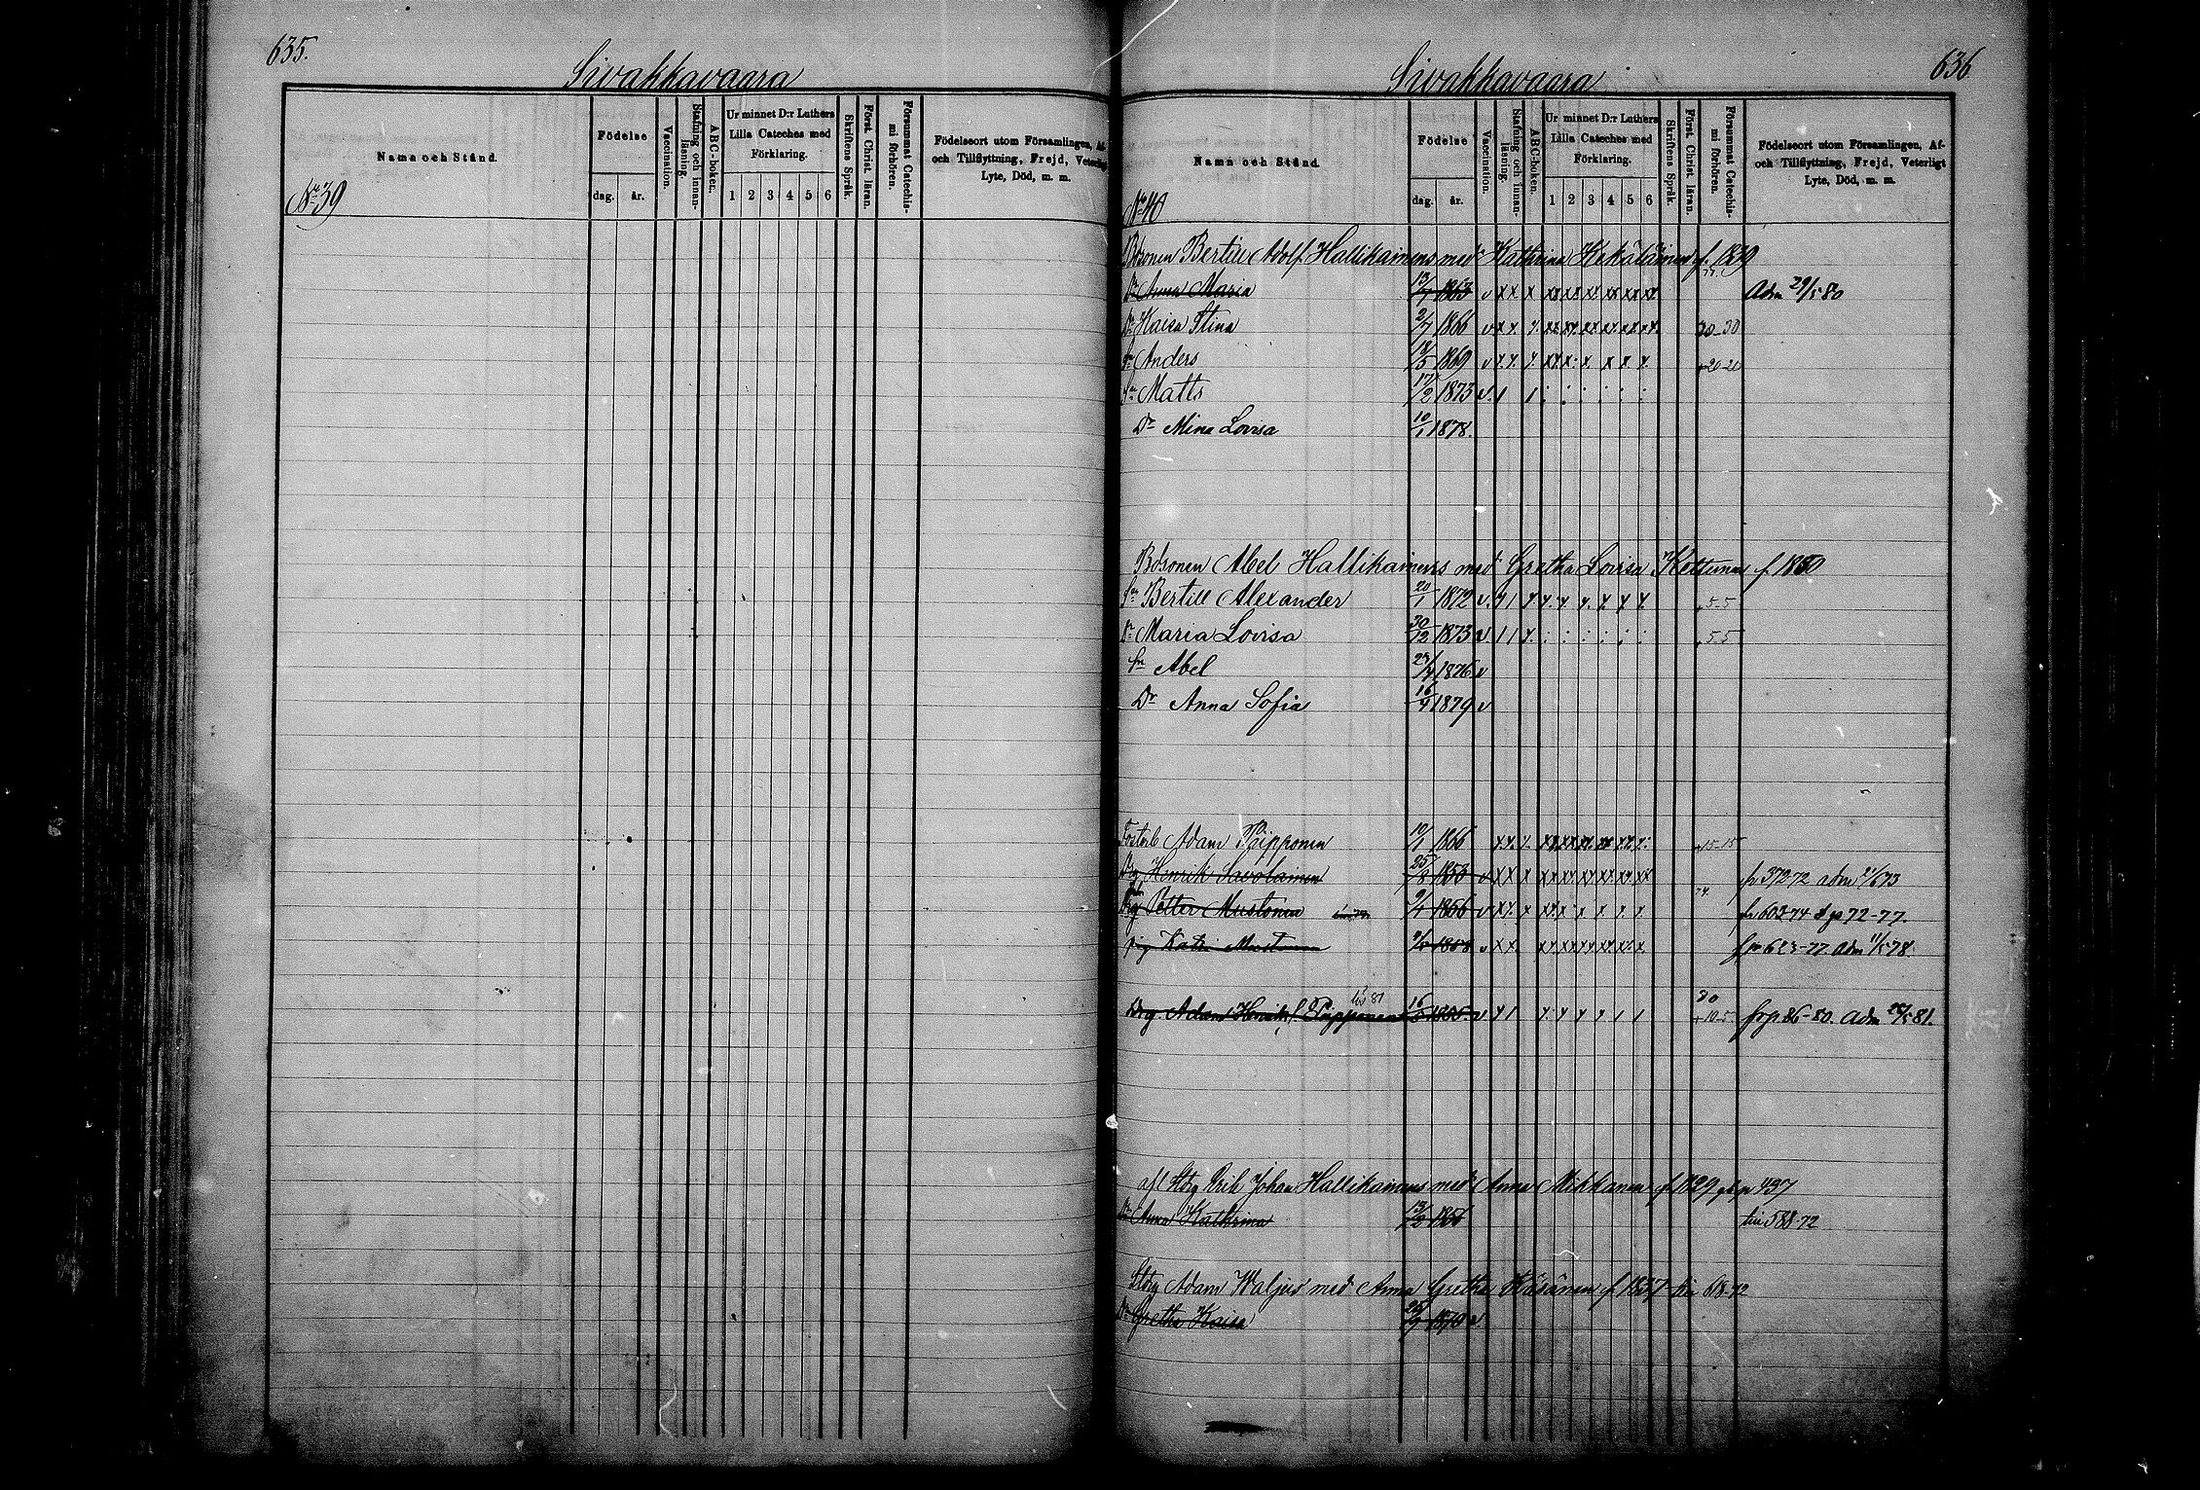 635.
Sivakkavaara
Namn och Stånd.
Födelse
dag. år.
Vaccination.
Stafning och innan-läsning.
ABC-boken.
Ur minnet D:r Luthers
Lilla Cateches med
Förklaring.
1 2 3 4 5 6
Skriftens Språk.
Först. Christ. läran.
Försummat Catechis-
mi förhören.
Födelseort utom Församlingen, Af-
och Tillflyttning, Frejd, Veterligt
Lyte, Död, m. m.
No 39
636
Sivakkavaara
Namn och Stånd.
Födelse
dag. år.
Vaccination.
Stafning och innan-
läsning.
ABC-boken.
Ur minnet D:r Luthers
Lilla Cateches med
Förklaring.
1 2 3 4 5 6
Skriftens Språk.
Först. Christ. läran.
Försummat Catechis-
mi förhören.
Födelseort utom Församlingen, Af-
och Tillflyttning, Frejd, Veterligt
Lyte, Död, m. m.
No 40
Bdsonen Bertill Adolf Hallikainens med Kathrina Kekäläinen f. 1839
Dr Anna Maria 13/7 1863 v x x x Adm 29/5 80
Dr Kaisa Stina 2/7 1866 v x x 30-30
Sn Anders 18/5 1869 v 20-20
Sn Matts 17/2 1873 v
Dr Mina Lovisa 10/1 1878.
Bdsonen Abel Hallikainens med Gretha Lovisa Kettunen f 1850
Sn Bertill Alexander 20/1 1872 v. 5-5
Dr Maria Lovisa 30/12 1873 v. 5-5
Sn Abel 27/7 1876 v
Dr Anna Sofia 16/9 1879 v
Fosterb Adam Piipponen 10/1 1866 15-15
Drg Henrik Savolainen 1853 v fr 372-72 adm 2/6 73
Drg Petter Mustonen 9/4 1856 v fr 603-74 t p 72-77.
Pig Kaisa Mustonen 1858 v fr p 623-77. adm 11/5 78.
Drg. Adam Henrik Piipponen 16/5 1865 v 10-5 fr p 86-80. Adm 5 81.
afl Storg Erik Johan Hallikainens med Anna Mikkonen f 1829 p 437
Dr Anna Kathrina 1856 till 588-72
Storg Adam Waljus med Anna Gretha Räsänen f 1837 till 618-72
Dr Gretha Kaisa 1870 v.